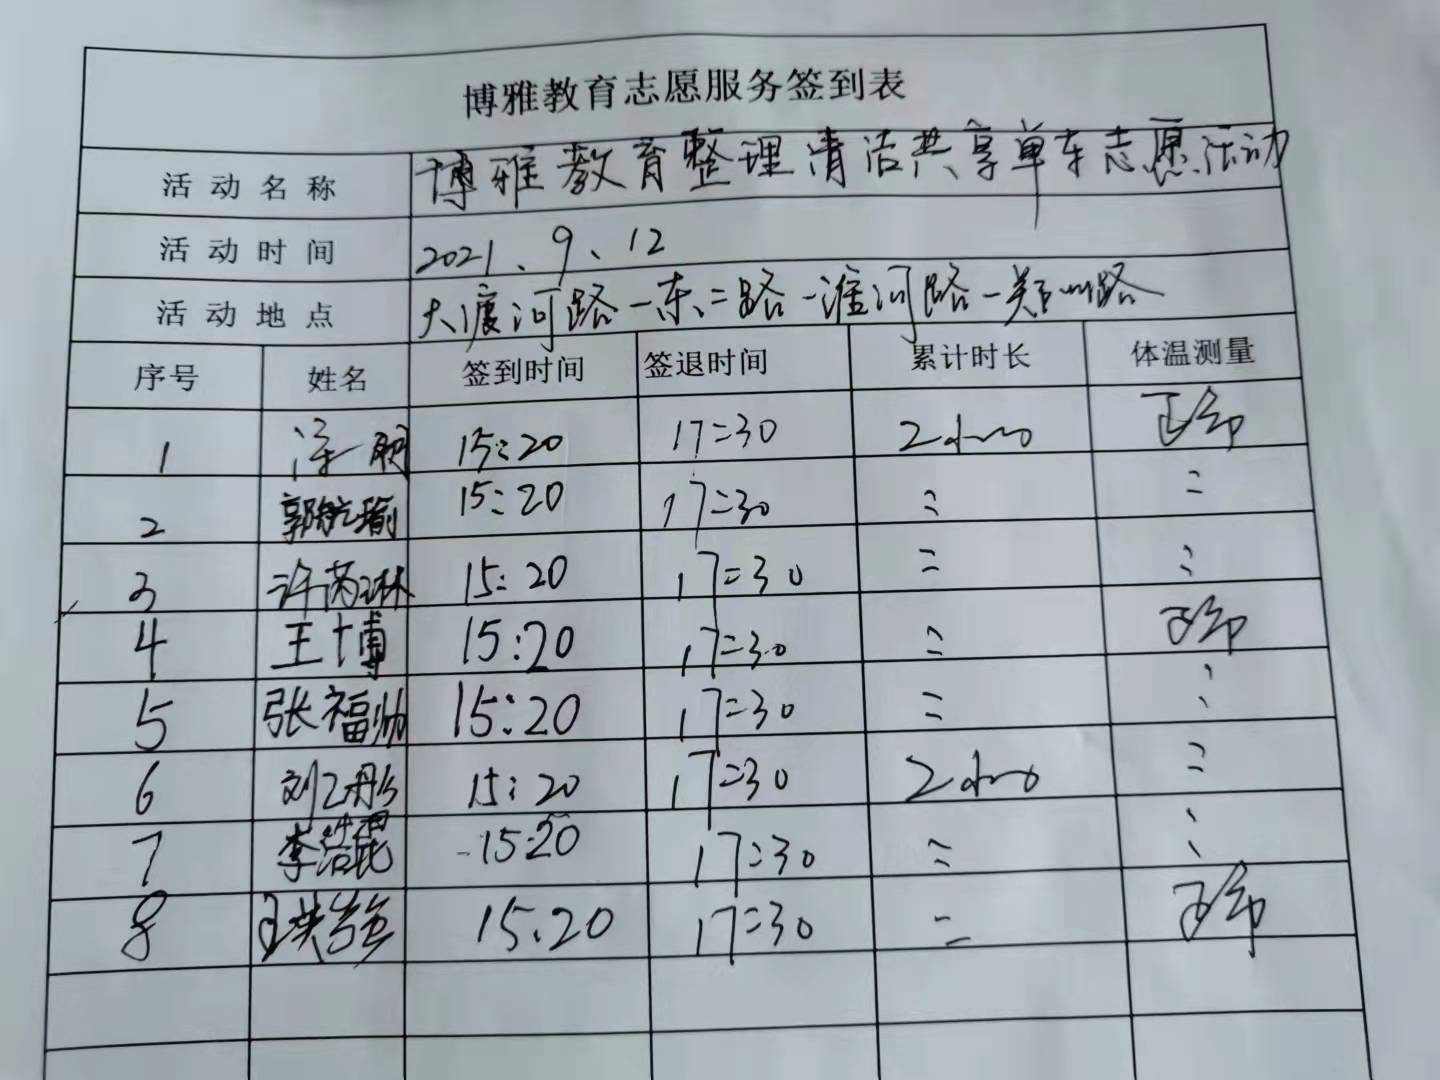 博雅教育志愿服务签到表
活动名称 博雅教育整理清洁共享单车志愿活动
活动时间 2021、9、12
活动地点 大渡河路-东二路-淮河路-郑州路
序号 姓名 签到时间 签退时间 累计时长 体温测量
1 15:20 17:30 2 正常
2 郭航瑜 15:20 17:30
3 许芮琳 15:20 17:30
4 王博 15:20 17:30 正常
5 张福帅 15:20 17:30
6 刘乙彤 15:20 17:30 2
7 李浩琨 15:20 17:30
8 15:20 17:30 正常